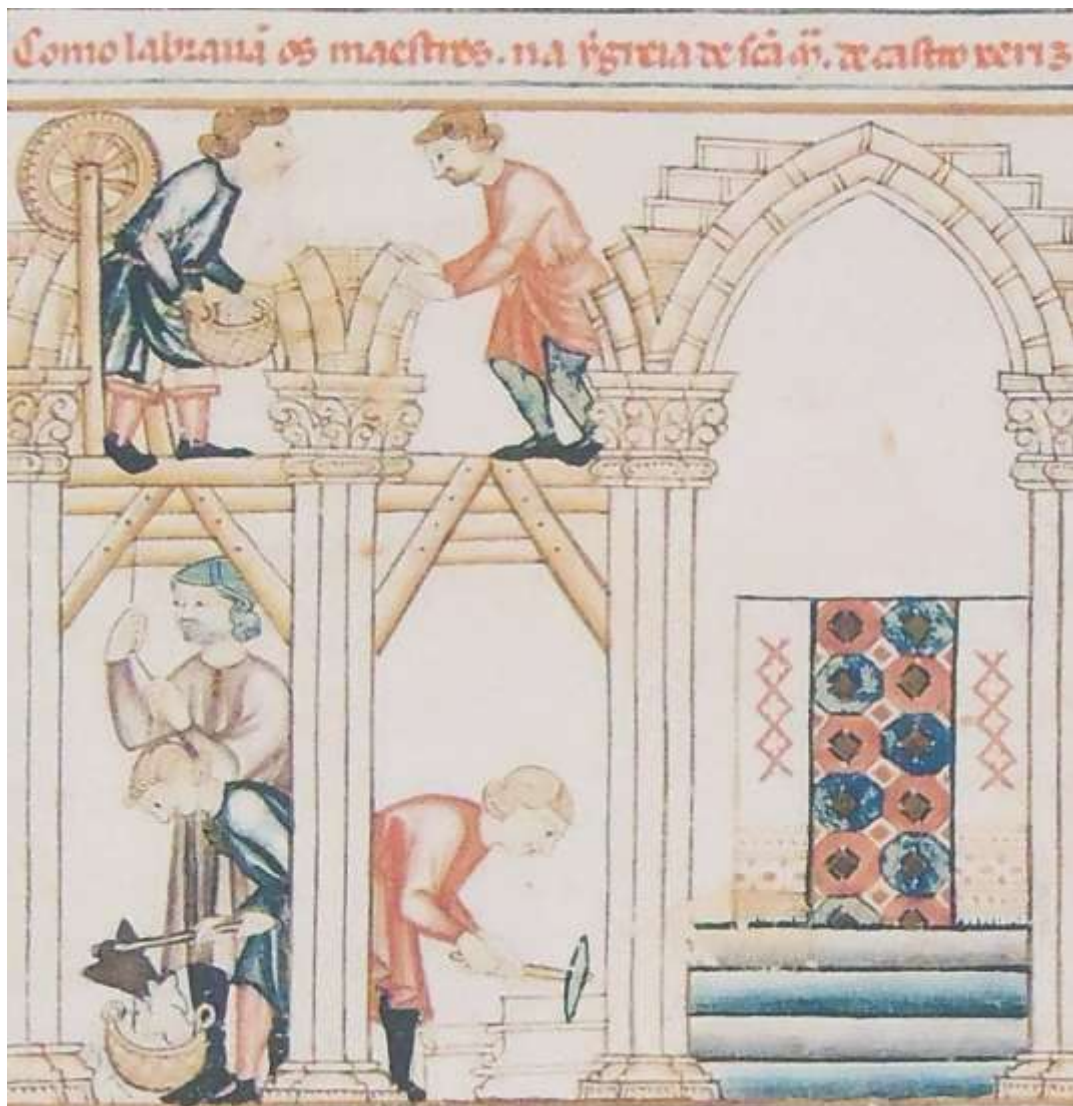 Como labrauã os maestres. na ygreia de sc̃a m̃. de castro xeriz